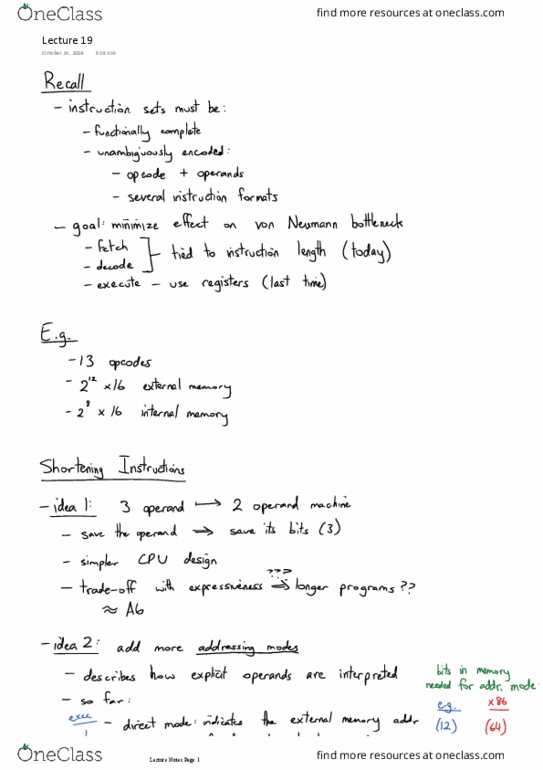 OneClass
find more resources at oneclass.com
Lecture 19
October 24, 2018
Recall
- instruction sets must be:
- functionally complete
- unambiguously encoded:
- opcode + operands
- several instruction formats
- goal: minimize effect on von Neumann bottleneck
- fetch
- decode
tied to instruction length (today)
- execute - use registers (last time)
E.g.
- 13 opcodes
- 2^12 x 16 external memory
- 2^3 x 16 internal memory
Shortening Instructions
- idea 1: 3 operand ↦ 2 operand machine
- save the operand ⇒ save its bits (3)
- simpler CPU design
- trade-off with expressiveness ⇒ longer programs ??
???
≈ A6
- idea 2: add more addressing modes
- describes how explicit operands are interpreted
- so far:
bits in memory
needed for addr. mode
e.g. x86
exec
- direct mode: indicates the external memory addr
(12) (64)
OneClass
Lecture Notes Page 1
find more resources at oneclass.com